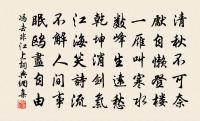 清秋不可奈
獻自懶登樓
一雁叫寒水
數峰生遠愁
乾坤消劍氣
江海笑詩流
不解人間事
眠鷗盡自由
馮去非江上詞典網集